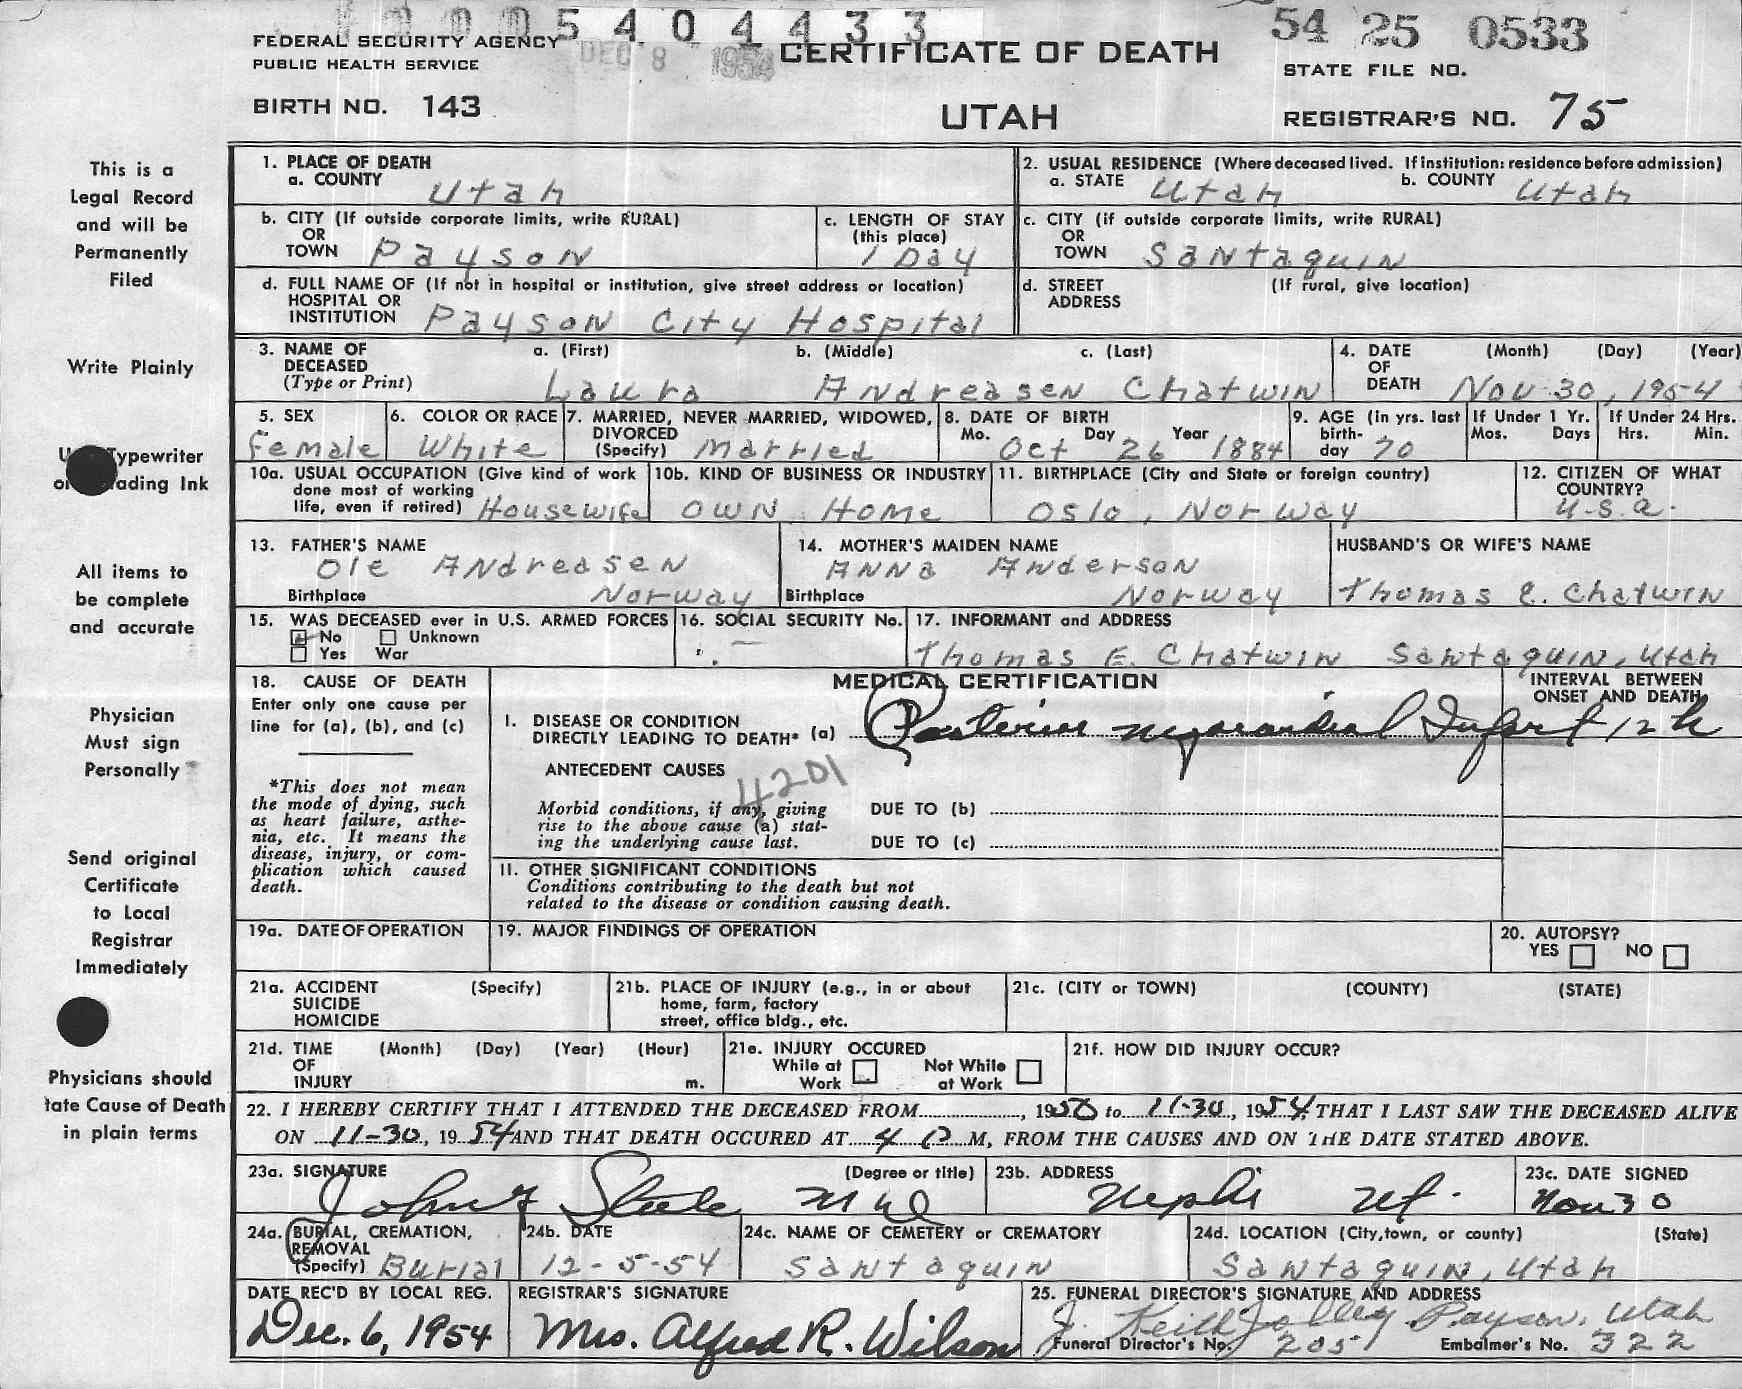 5 4 0 4 4 3 3
54 25 0533
FEDERAL SECURITY AGENCY
PUBLIC HEALTH SERVICE
DEC 8 1954
CERTIFICATE OF DEATH
STATE FILE NO.
BIRTH NO. 143
UTAH
REGISTRAR'S NO. 75
This is a
Legal Record
and will be
Permanently
Filed
Write Plainly
Typewriter
ading Ink
All items to
be complete
and accurate
Physician
Must sign
Personally
Send original
Certificate
to Local
Registrar
Immediately
Physicians should
tate Cause of Death
in plain terms
1. PLACE OF DEATH
a. COUNTY Utah
2. USUAL RESIDENCE (Where deceased lived. If institution: residence before admission)
a. STATE Utah b. COUNTY Utah
b. CITY (If outside corporate limits, write RURAL)
OR
TOWN Payson
c. LENGTH OF STAY
(this place)
1 Day
c. CITY (if outside corporate limits, write RURAL)
OR
TOWN Santaquin
d. FULL NAME OF (If not in hospital or institution, give street address or location)
HOSPITAL OR
INSTITUTION Payson City Hospital
d. STREET (If rural, give location)
ADDRESS
3. NAME OF a. (First) b. (Middle) c. (Last)
DECEASED
(Type or Print) Laura Andreasen Chatwin
4. DATE (Month) (Day) (Year)
OF
DEATH Nov 30, 1954
5. SEX
Female
6. COLOR OR RACE
White
7. MARRIED, NEVER MARRIED, WIDOWED,
DIVORCED
(Specify) Married
8. DATE OF BIRTH
Mo. Day Year
Oct 26 1884
9. AGE (in yrs. last
birth-
day 70
If Under 1 Yr.
Mos. Days
If Under 24 Hrs.
Hrs. Min.
10a. USUAL OCCUPATION (Give kind of work
done most of working
life, even if retired) Housewife
10b. KIND OF BUSINESS OR INDUSTRY
Own Home
11. BIRTHPLACE (City and State or foreign country)
Oslo, Norway
12. CITIZEN OF WHAT
COUNTRY?
U.S.a.
13. FATHER'S NAME
Ole Andreasen
Birthplace Norway
14. MOTHER'S MAIDEN NAME
Anna Anderson
Birthplace Norway
HUSBAND'S OR WIFE'S NAME
Thomas E. Chatwin
15. WAS DECEASED ever in U.S. ARMED FORCES
No Unknown
Yes War
16. SOCIAL SECURITY No.
17. INFORMANT and ADDRESS
Thomas E. Chatwin Santaquin, Utah
18. CAUSE OF DEATH
Enter only one cause per
line for (a), (b), and (c)
*This does not mean
the mode of dying, such
as heart failure, asthe-
nia, etc. It means the
disease, injury, or com-
plication which caused
death.
MEDICAL CERTIFICATION
INTERVAL BETWEEN
ONSET AND DEATH
I. DISEASE OR CONDITION
DIRECTLY LEADING TO DEATH* (a) Posterior myocardial Infarct 12 h
ANTECEDENT CAUSES
4201
Morbid conditions, if any, giving
rise to the above cause (a) stat-
ing the underlying cause last.
DUE TO (b)
DUE TO (c)
II. OTHER SIGNIFICANT CONDITIONS
Conditions contributing to the death but not
related to the disease or condition causing death.
19a. DATE OF OPERATION
19. MAJOR FINDINGS OF OPERATION
20. AUTOPSY?
YES NO
21a. ACCIDENT (Specify)
SUICIDE
HOMICIDE
21b. PLACE OF INJURY (e.g., in or about
home, farm, factory
street, office bldg., etc.
21c. (CITY or TOWN) (COUNTY) (STATE)
21d. TIME (Month) (Day) (Year) (Hour)
OF
INJURY m.
21e. INJURY OCCURED
While at Work
Not While at Work
21f. HOW DID INJURY OCCUR?
22. I HEREBY CERTIFY THAT I ATTENDED THE DECEASED FROM , 1950 to 11-30, 1954, THAT I LAST SAW THE DECEASED ALIVE
ON 11-30, 1954 AND THAT DEATH OCCURED AT 4 P M, FROM THE CAUSES AND ON THE DATE STATED ABOVE.
23a. SIGNATURE (Degree or title)
John Steele M D
23b. ADDRESS
Nephi Ut.
23c. DATE SIGNED
Nov 30
24a. BURIAL, CREMATION,
REMOVAL
(Specify) Burial
24b. DATE
12-5-54
24c. NAME OF CEMETERY or CREMATORY
Santaquin
24d. LOCATION (City, town, or county) (State)
Santaquin, Utah
DATE REC'D BY LOCAL REG.
Dec. 6, 1954
REGISTRAR'S SIGNATURE
Mrs. Alfred R. Wilson
25. FUNERAL DIRECTOR'S SIGNATURE AND ADDRESS
J. Keill Jolley Payson, Utah
Funeral Director's No. 205 Embalmer's No. 322